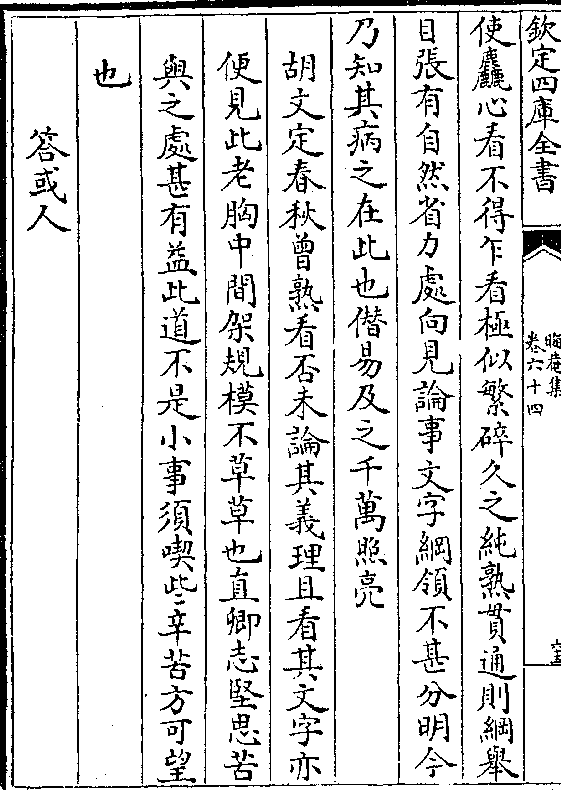 欽定四庫全書
晦庵集
卷六十四
使麤心看不得乍看極似繁碎久之純熟貫通則綱舉
目張有自然省力處向見論事文字綱領不甚分明今
乃知其病之在此也僭易及之千萬照亮
胡文定春秋曾熟看否未論其義理且看其文字亦
便見此老胸中間架規模不草草也直卿志堅思苦
與之處甚有益此道不是小事須喫些辛苦方可望
也
答或人